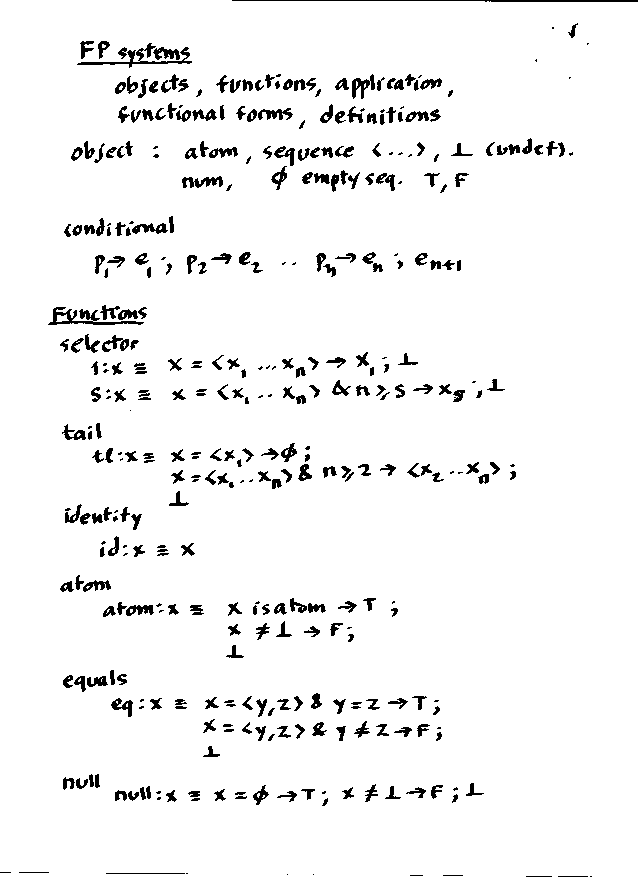 FP systems
objects, functions, application,
functional forms, definitions
object : atom, sequence <...>, ⊥ (undef).
num, ϕ empty seq. T, F
conditional
p₁→e₁; p₂→e₂ .. pₙ→eₙ; eₙ₊₁
Functions
selector
1:x ≡ x = <x₁ ...xₙ> → x₁; ⊥
s:x ≡ x = <x₁ .. xₙ> & n ≥ s → xₛ; ⊥
tail
tl:x ≡ x = <x₁> → ϕ;
x = <x₁..xₙ> & n ≥ 2 → <x₂..xₙ>;
⊥
identity
id:x ≡ x
atom
atom:x ≡ x is atom → T ;
x ≠ ⊥ → F;
⊥
equals
eq:x ≡ x = <y,z> & y = z → T;
x = <y,z> & y ≠ z → F;
⊥
null
null:x ≡ x = ϕ → T; x ≠ ⊥ → F; ⊥